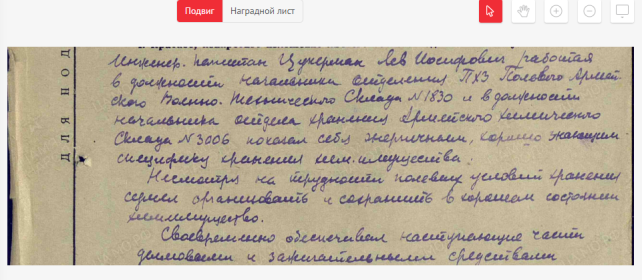 Подвиг Наградной лист
Инженер-капитан Цукерман Лев Иосифович работая
в должности начальника отделения ПХЗ Полевого Армей-
ского Военно-Технического Склада N 1830 и в должности
начальника отдела хранения Армейского химического
Склада N 3006 показал себя энергичным, хорошо знающим
специфику хранения хим.имущества.
Несмотря на трудности полевых условий хранения
сумел организовать и сохранить в хорошем состоянии
химимущество.
Своевременно обеспечивал наступающие части
дымовыми и зажигательными средствами
ДЛЯ ПОД